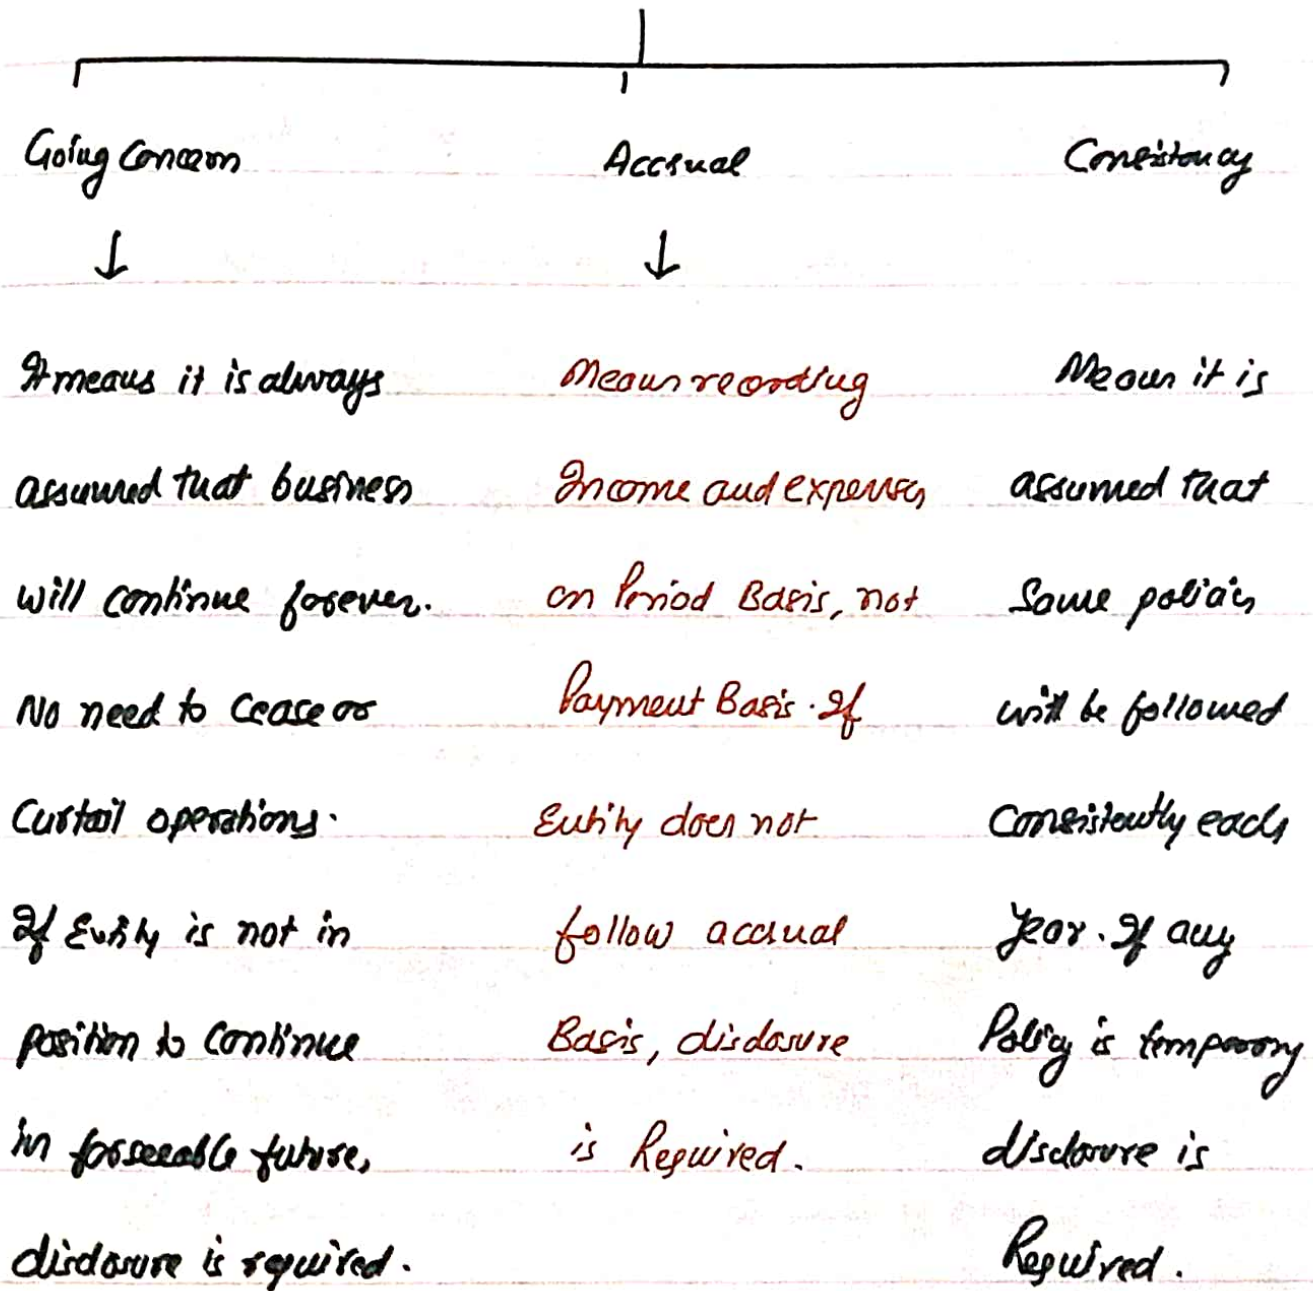 Going Concern
Accrual
Consistency
It means it is always
assumed that business
will continue forever.
No need to cease or
Curtail operations.
If Entity is not in
position to continue
in forseeable future,
disclosure is required.
Means recording
Income and expenses
on Period Basis, not
Payment Basis. If
Entity does not
follow accrual
Basis, disclosure
is Required.
Means it is
assumed that
Same policies
will be followed
Consistently each
Year. If any
Policy is temporary
disclosure is
Required.